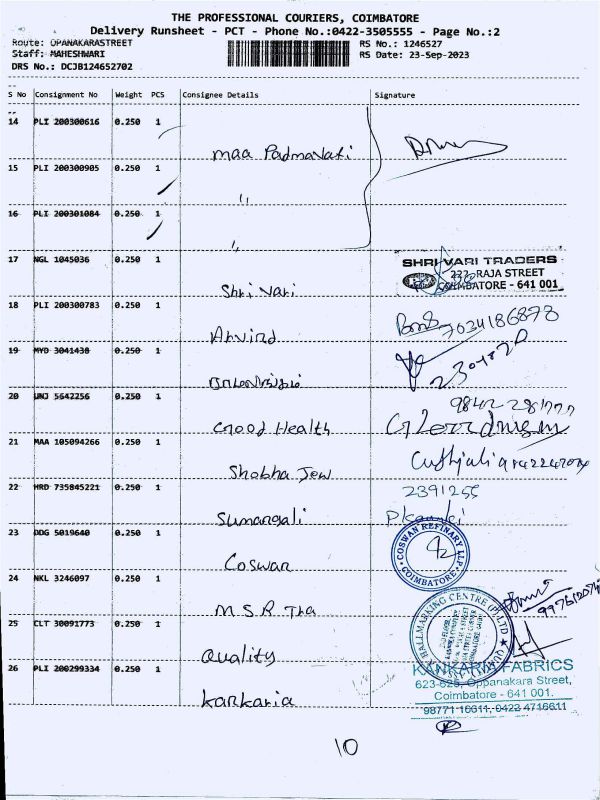 THE PROFESSIONAL COURIERS, COIMBATORE
Delivery Runsheet - PCT - Phone No.:0422-3505555 - Page No.:2
Route: OPANAKARASTREET
RS No.: 1246527
Staff: MAHESHWARI
RS Date: 23-Sep-2023
DRS No.: DCJB124652702
S No Consignment No Weight PCS Consignee Details Signature
14 PLI 200300616 0.250 1
maa Padmavati
15 PLI 200300905 0.250 1
"
16 PLI 200301084 0.250 1
"
17 NGL 1045036 0.250 1
Shri Vari
SHRI VARI TRADERS
222, RAJA STREET
COIMBATORE - 641 001
18 PLI 200300783 0.250 1
Arvind
7034186878
19 MYD 3041438 0.250 1
20 UNJ 5642256 0.250 1
Good Health
21 MAA 105094266 0.250 1
Shobha Jew
22 HRD 735845221 0.250 1
Sumangali
2391255
23 DDG 5019640 0.250 1
Coswan
COSWAN REFINARY LLP
COIMBATORE
24 NKL 3246097 0.250 1
M.S.R Tha
25 CLT 30091773 0.250 1
Quality
HALLMARKING CENTRE (P) LTD
26 PLI 200299334 0.250 1
kankaria
KANKARIA FABRICS
623-625, Oppanakara Street,
Coimbatore - 641 001.
98771 16611, 0422 4716611
10